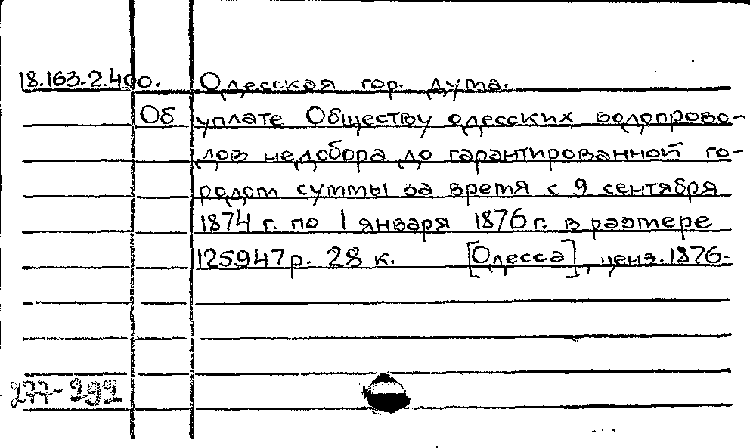 18.163.2.400. Одесская гор. дума.
Об уплате Обществу одесских водопрово-
дов недобора до гарантированной го-
родом суммы за время с 9 сентября
1874 г. по 1 января 1876 г. в размере
125947 р. 28 к. [Одесса], ценз. 1876.
277-292